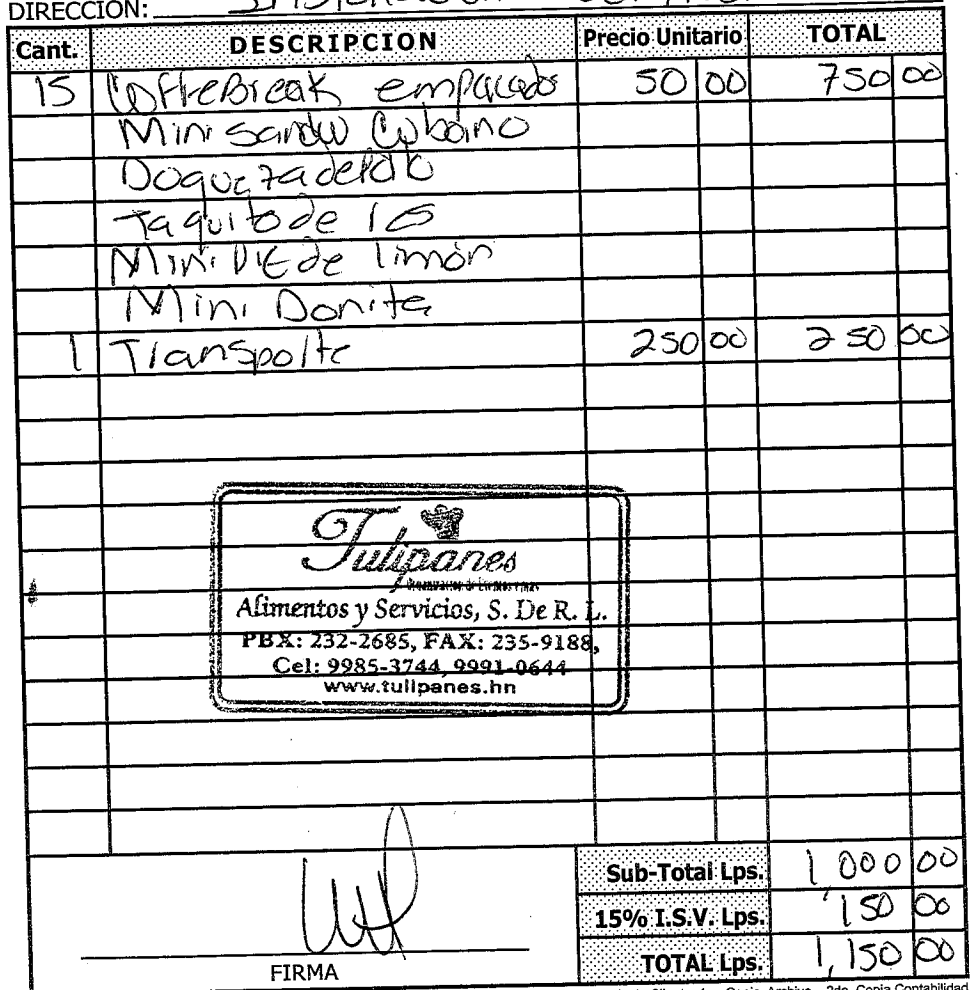 DIRECCIÓN:
Cant. DESCRIPCION Precio Unitario TOTAL
15 CoffeeBreak empacados 50 00 750 00
Mini sandw Cubano
de
Taquito de
Mini Pie de limón
Mini Donita
1 Transporte 250 00 250 00
Tulipanes
Alimentos y Servicios, S. De R. L.
PBX: 232-2685, FAX: 235-9188,
Cel: 9985-3744, 9991-0644
www.tulipanes.hn
Sub-Total Lps. 1 000 00
15% I.S.V. Lps. 150 00
TOTAL Lps. 1,150 00
FIRMA
Copia Archivo 2da. Copia Contabilidad